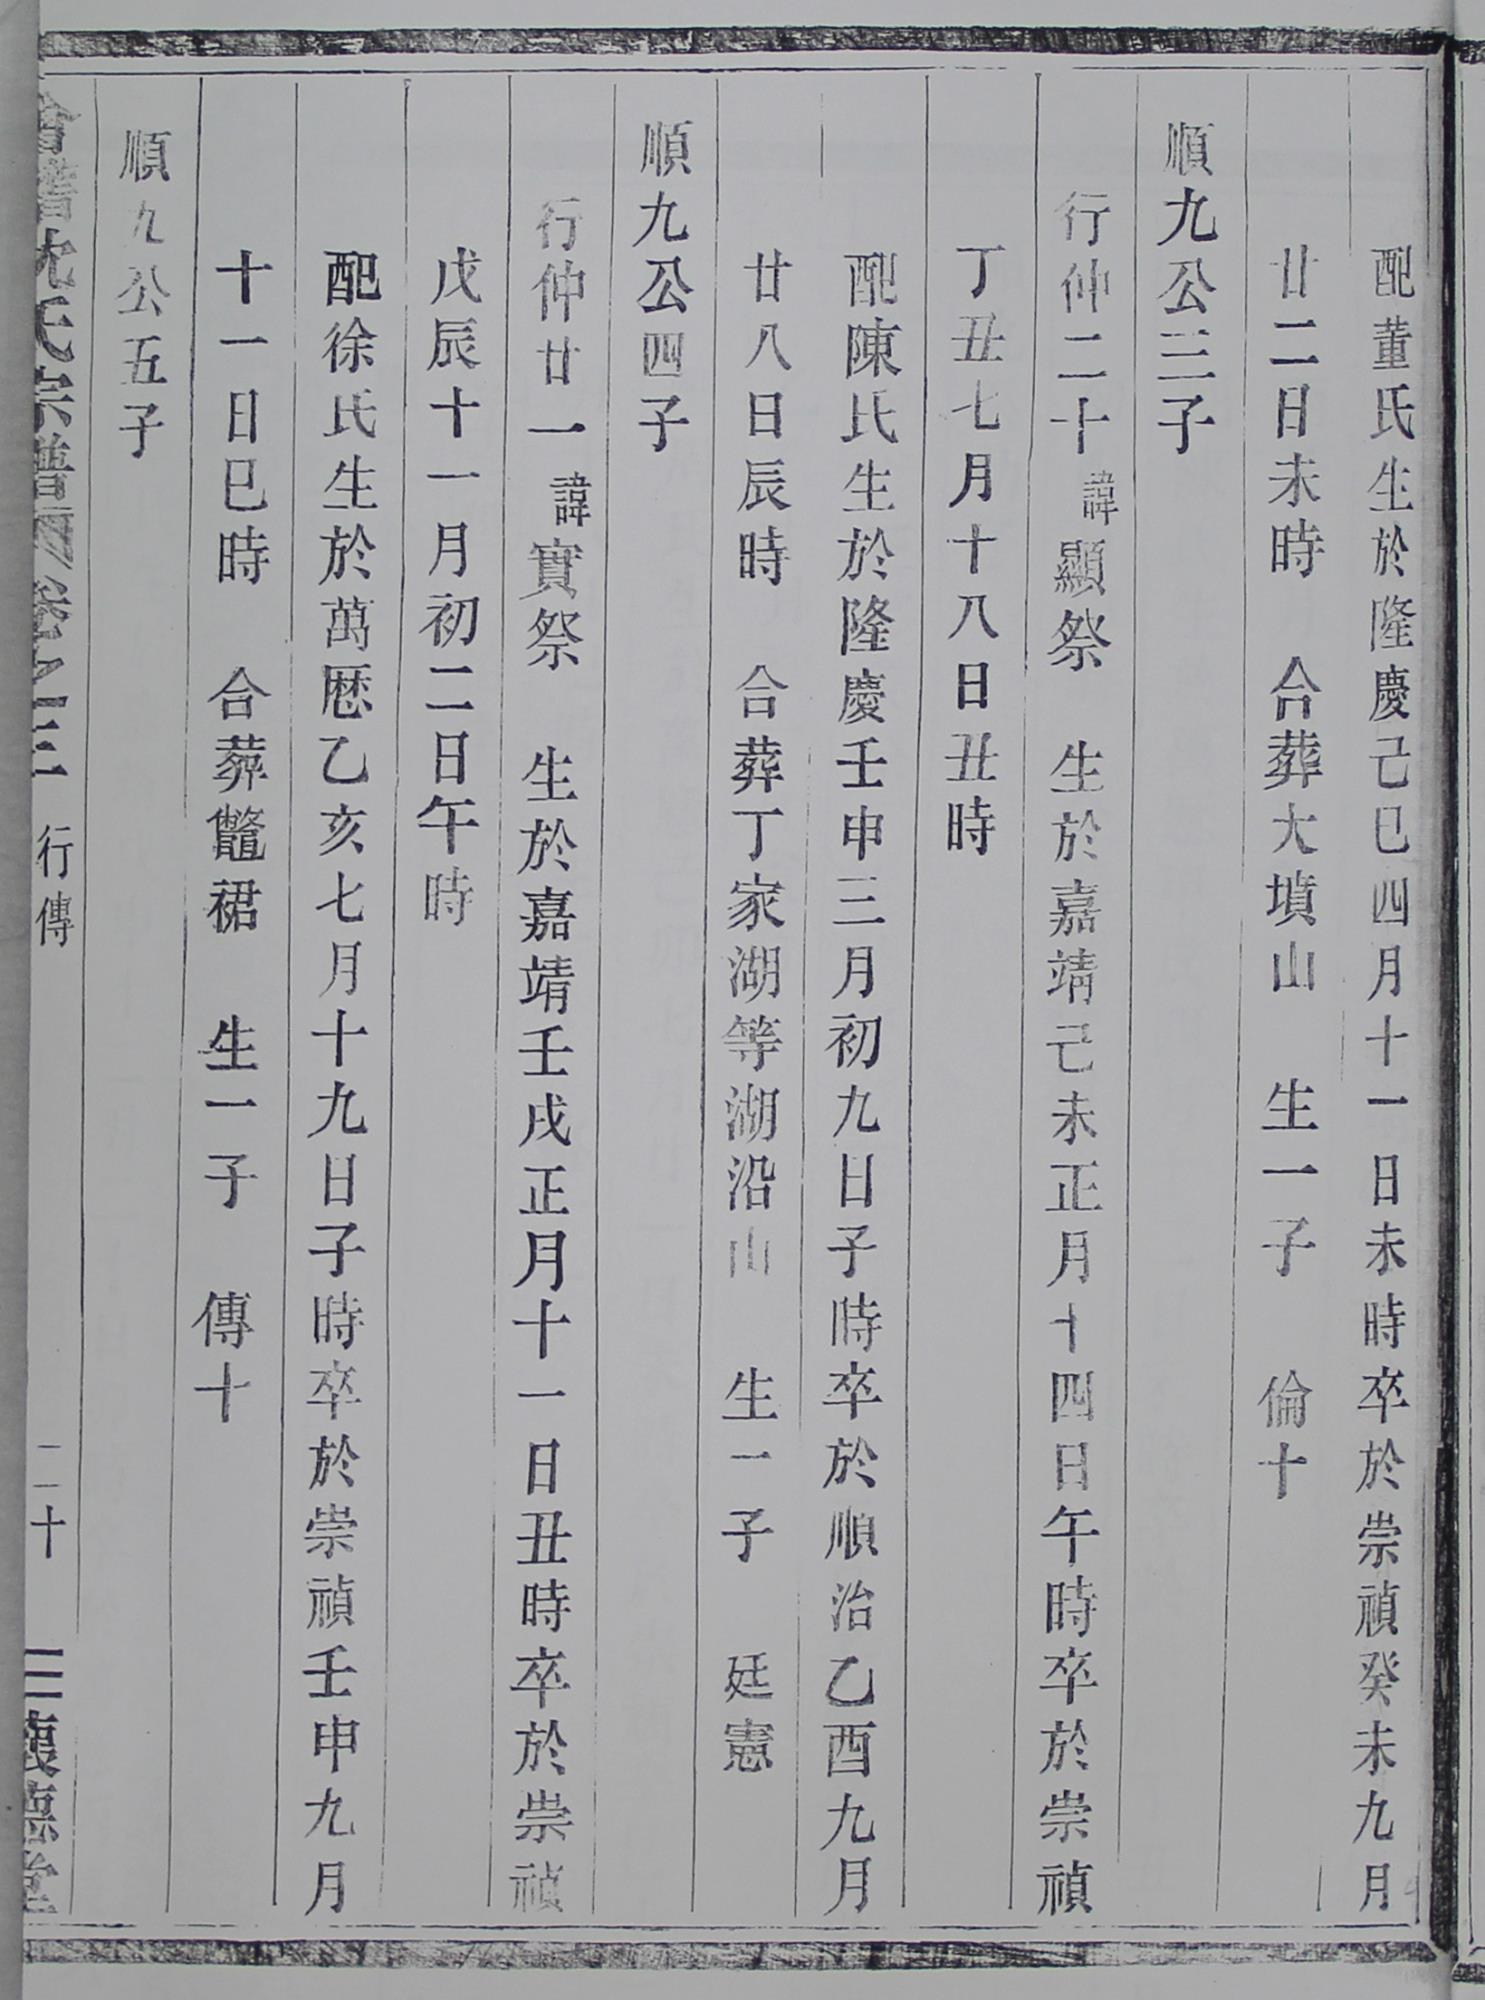 配董氏生於隆慶己巳四月十一日未時卒於崇禎癸未九月
廿二日未時　合葬大墳山　生一子　倫十
順九公三子
行仲二十諱顯祭　生於嘉靖己未正月十四日午時卒於崇禎
丁丑七月十八日丑時
配陳氏生於隆慶壬申三月初九日子時卒於順治乙酉九月
廿八日辰時　合葬丁家湖等湖沿山　生一子　廷憲
順九公四子
行仲廿一諱實祭　生於嘉靖壬戌正月十一日丑時卒於崇禎
戊辰十一月初二日午時
配徐氏生於萬厯乙亥七月十九日子時卒於崇禎壬申九月
十一日巳時　合葬鼈裙　生一子　傳十
順九公五子
沈氏宗譜　卷之三　行傳　二十　懷德堂